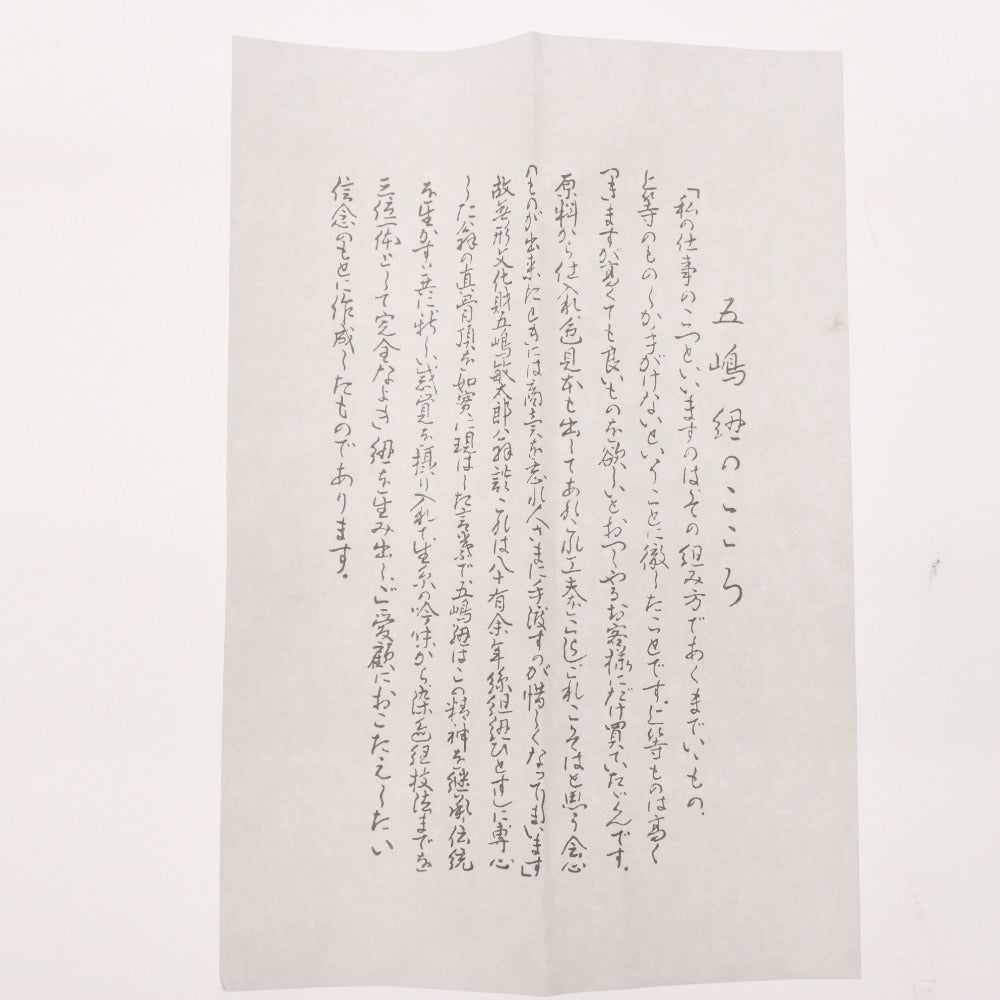 五嶋紐のこころ
「私の仕事のこつといいますのは、その組み方であくまでいいもの、
上等のものしか手がけないということに徹したことです。上等ものは高く
つきますが、高くても良いものを欲しいとおっしゃるお客様にだけ買っていただくんです。
原料から仕入れ、色見本も出してあれこれ工夫をこらしこれこそはと思う会心
のものが出来たときには商売を忘れ人さまに手渡すのが惜しくなってしまいます」
故無形文化財五嶋敏太郎公翁談 これは八十有余年絲組紐ひとすじに専心
した翁の真骨頂を如実に現はした言葉で五嶋紐はこの精神を継承し伝統
を生かすと共に新しい感覚を摂り入れて生糸の吟味から染色組技法までを
三位一体として完全なよき紐を生み出し、ご愛顧におこたえしたい
信念のもとに作成したものであります。